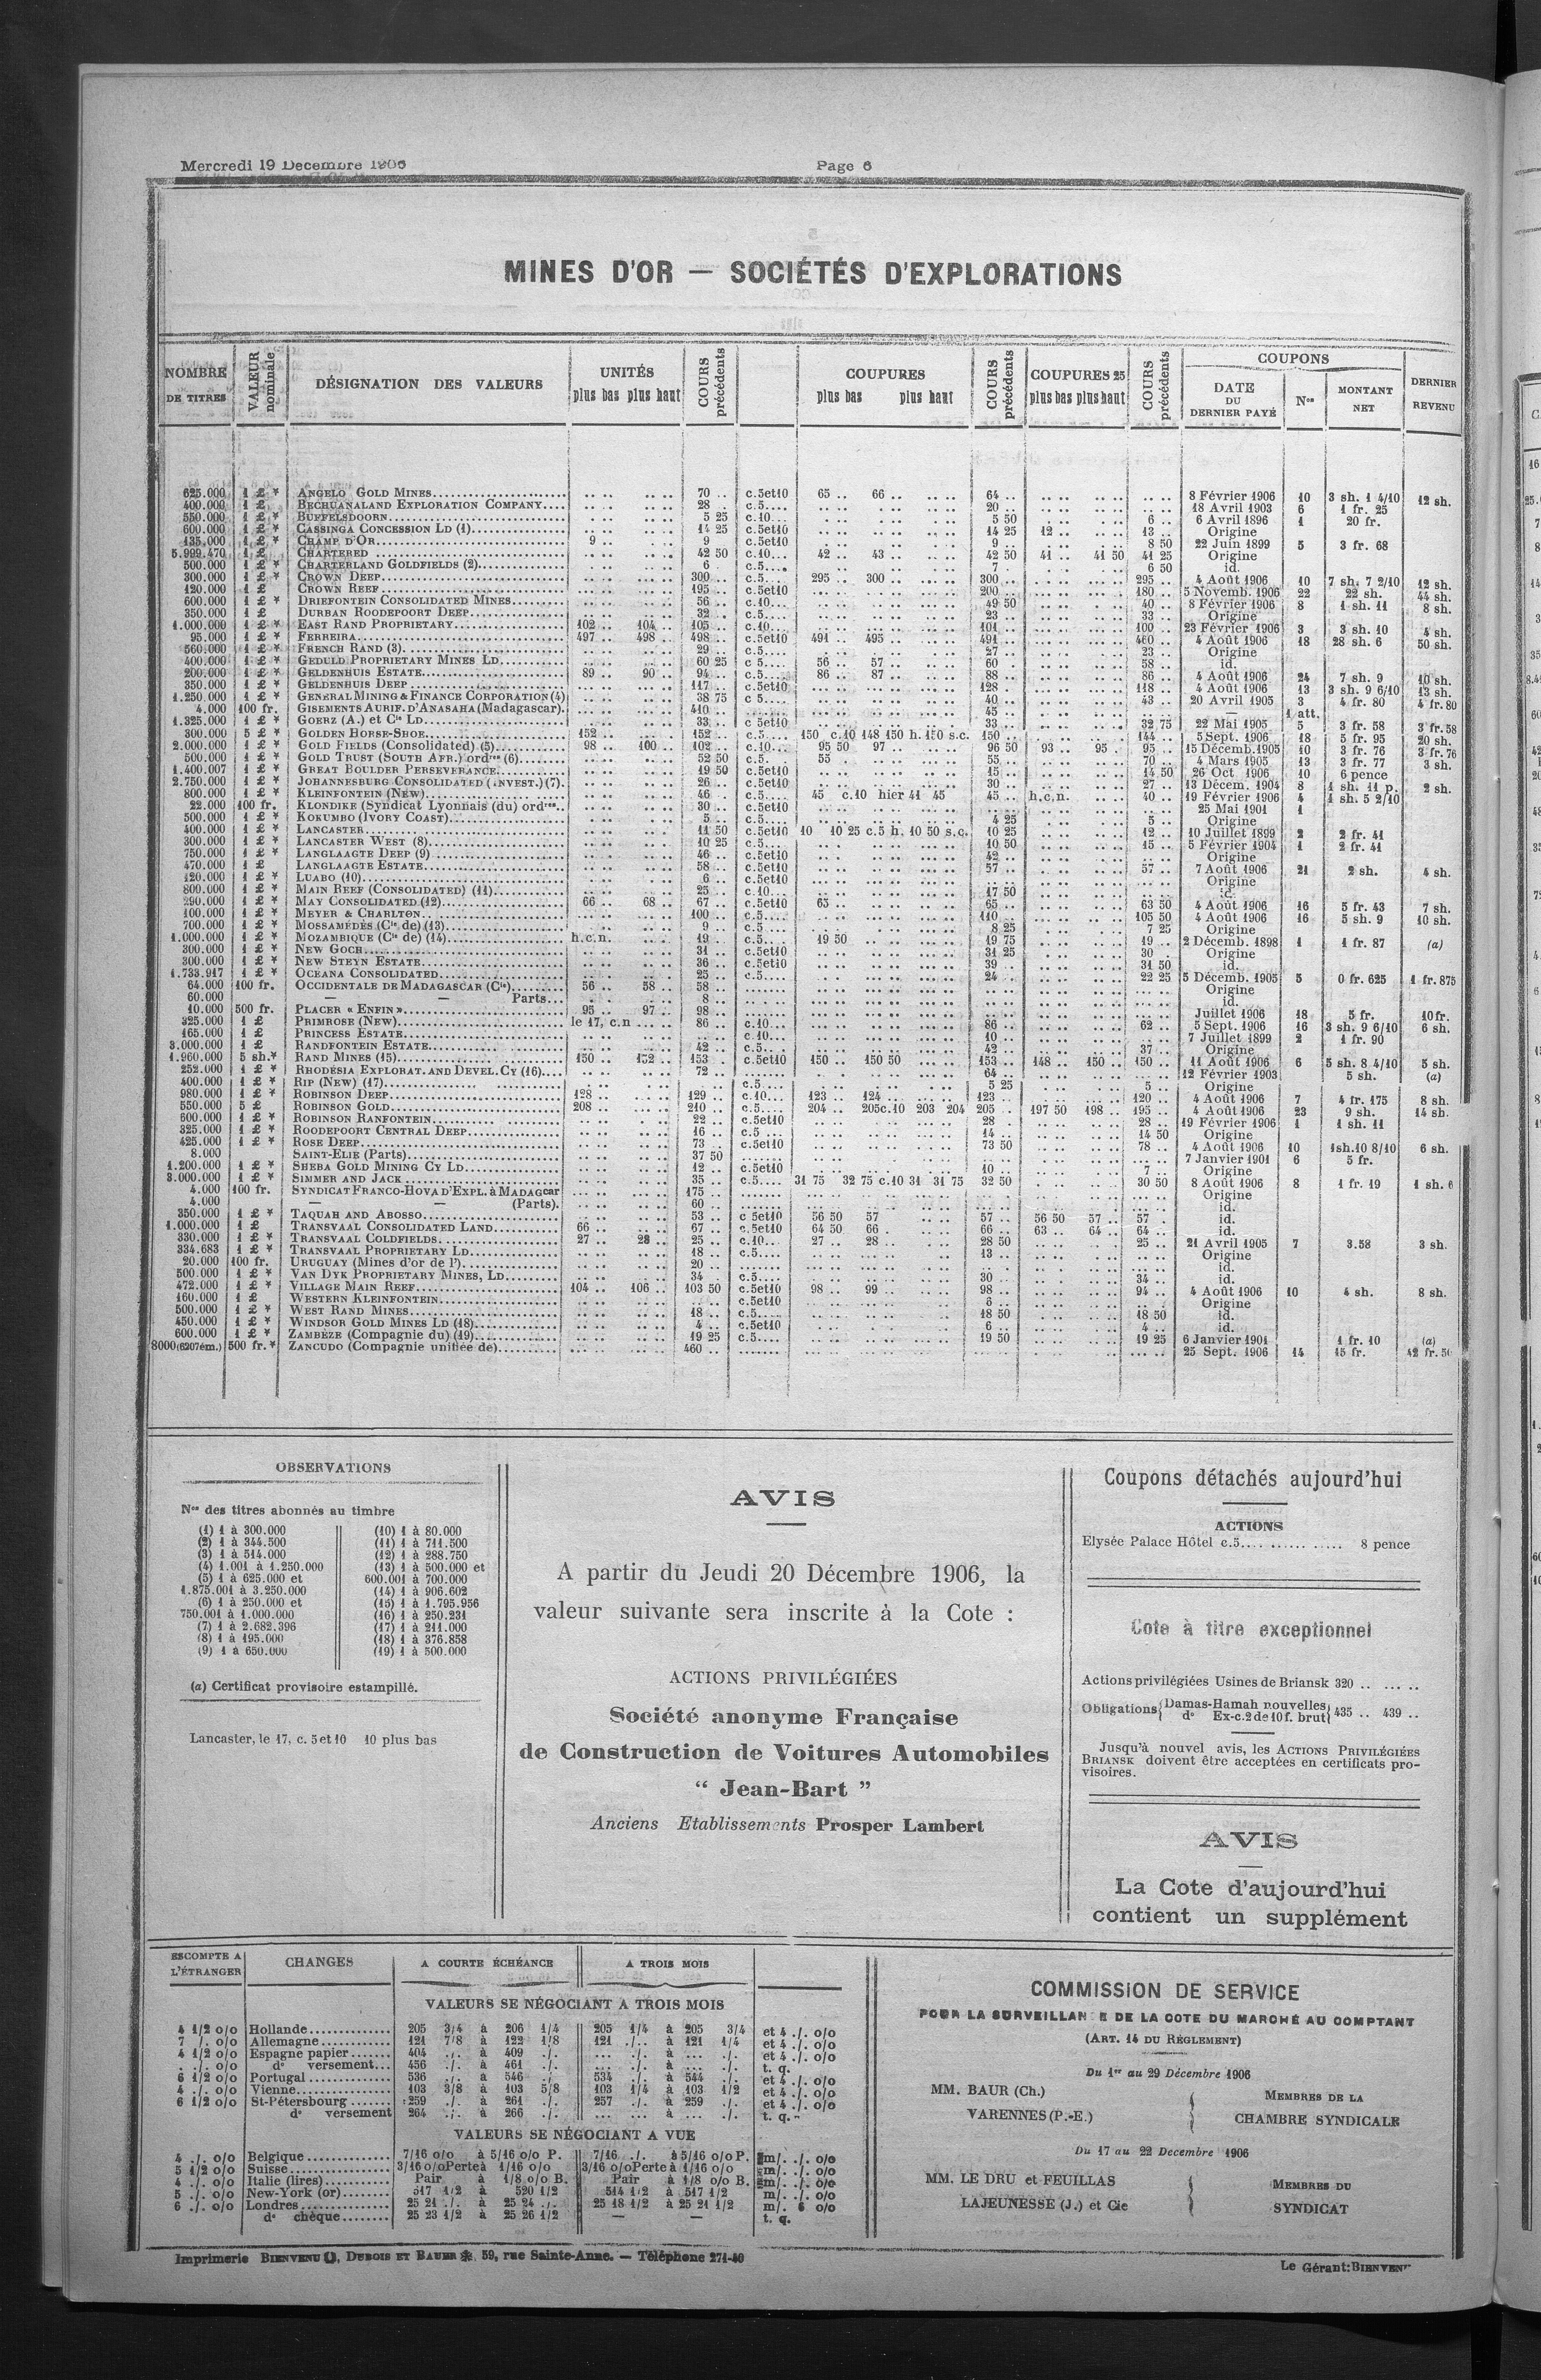 Mercredi 19 Decembre 1906
Page 6
MINES D'OR — SOCIÉTÉS D'EXPLORATIONS
NOMBRE DE TITRES
VALEUR nominale
DÉSIGNATION DES VALEURS
UNITÉS plus bas plus haut
COURS précédents
COUPURES plus bas plus haut
COURS précédents
COUPURES 25 plus bas plus haut
COURS précédents
COUPONS
DATE DU DERNIER PAYÉ
Nos
MONTANT NET
DERNIER REVENU
625.000 1 £ * ANGELO GOLD MINES 70 .. c.5et10 65 .. 66 .. 64 .. 8 Février 1906 10 3 sh. 1 4/10 12 sh.
400.000 1 £ BECHUANALAND EXPLORATION COMPANY 28 . c.5 20 .. 18 Avril 1903 6 1 fr. 25
550.000 1 £ * BUFFELSDOORN 5 25 c.10 5 50 6 .. 6 Avril 1896 1 20 fr.
600.000 1 £ * CASSINGA CONCESSION LD (1) 14 25 c.5et10 14 25 12 .. 13 .. Origine
135.000 1 £ * CHAMP D'OR 9 .. 9 c.5et10 9 .. 8 50 22 Juin 1899 5 3 fr. 68
5.999.470 1 £ * CHARTERED 42 50 c.10 42 .. 43 .. 42 50 41 .. 41 50 41 25 Origine
500.000 1 £ * CHARTERLAND GOLDFIELDS (2) 6 . c.5 7 6 50 id.
300.000 1 £ * CROWN DEEP 300 .. c.5 295 .. 300 .. 300 .. 295 .. 4 Août 1906 10 7 sh. 7 2/10 12 sh.
120.000 1 £ CROWN REEF 195 .. c.5et10 200 .. 180 .. 5 Novemb. 1906 22 22 sh. 44 sh.
600.000 1 £ * DRIEFONTEIN CONSOLIDATED MINES 56 .. c.10 49 50 40 .. 8 Février 1906 8 1 sh. 11 8 sh.
350.000 1 £ DURBAN ROODEPOORT DEEP 32 .. c.5 23 .. 33 .. Origine
1.000.000 1 £ * EAST RAND PROPRIETARY 102 .. 104 .. 105 .. c.10 101 .. 100 .. 23 Février 1906 3 3 sh. 10 4 sh.
95.000 1 £ * FERREIRA 497 .. 498 .. 498 .. c.5et10 491 .. 495 .. 491 .. 460 .. 4 Août 1906 18 28 sh. 6 50 sh.
560.000 1 £ * FRENCH RAND (3) 29 .. c.5 27 .. 23 .. Origine
400.000 1 £ * GEDULD PROPRIETARY MINES LD 60 25 c 5 56 .. 57 .. 60 . 58 .. id.
200.000 1 £ * GELDENHUIS ESTATE 89 .. 90 .. 94 .. c.5 86 .. 87 .. 88 .. 86 .. 4 Août 1906 24 7 sh. 9 10 sh.
350.000 1 £ * GELDENHUIS DEEP 117 .. c.5et10 128 .. 118 .. 4 Août 1906 13 3 sh. 9 6/10 13 sh.
1.250.000 1 £ * GENERAL MINING & FINANCE CORPORATION (4) 38 75 c 5 40 .. 43 .. 20 Avril 1905 3 4 fr. 80 4 fr. 80
4.000 100 fr. GISEMENTS AURIF. D'ANASAHA (Madagascar) 410 .. 45 .. — 1 att.
1.325.000 1 £ * GOERZ (A.) et Cie LD 33 .. c 5et10 33 .. 32 75 22 Mai 1905 5 3 fr. 58 3 fr. 58
300.000 5 £ * GOLDEN HORSE-SHOE 152 .. 152 .. c.5 150 c.10 148 150 h. 150 s.c. 150 .. 144 .. 5 Sept. 1906 18 5 fr. 95 20 sh.
2.000.000 1 £ * GOLD FIELDS (Consolidated) (5) 98 .. 100 .. 102 .. c.10 95 50 97 .. 96 50 93 .. 95 . 95 .. 15 Décemb. 1905 10 3 fr. 76 3 fr. 76
500.000 1 £ * GOLD TRUST (SOUTH AFR.) ordres (6) 52 50 c.5 55 . 55 .. 70 .. 4 Mars 1905 13 3 fr. 77 3 sh.
1.400.007 1 £ * GREAT BOULDER PERSEVERANCE 19 50 c.5et10 15 .. 14 50 26 Oct 1906 10 6 pence
2.750.000 1 £ * JOHANNESBURG CONSOLIDATED (INVEST.) (7) 26 .. c.5et10 30 .. 27 .. 13 Décem. 1904 8 1 sh. 11 p. 2 sh.
800.000 1 £ * KLEINFONTEIN (NEW) 46 .. c.5 45 c.10 hier 41 45 45 .. h.c.n. 40 .. 19 Février 1906 4 1 sh. 5 2/10
22.000 100 fr. KLONDIKE (Syndicat Lyonnais (du) ordres 30 .. c.5et10 25 Mai 1901 1
500.000 1 £ * KOKUMBO (IVORY COAST) 5 .. c.5 4 25 5 .. Origine
400.000 1 £ * LANCASTER 11 50 c.5et10 10 10 25 c.5 h. 10 50 s.c. 10 25 12 .. 10 Juillet 1899 2 2 fr. 41
300.000 1 £ * LANCASTER WEST (8) 10 25 c.5 10 50 15 .. 5 Février 1904 1 2 fr. 41
750.000 1 £ * LANGLAAGTE DEEP (9) 46 .. c.5et10 42 .. Origine
470.000 1 £ LANGLAAGTE ESTATE 58 .. c.5et10 57 .. 57 .. 7 Août 1906 21 2 sh. 4 sh.
120.000 1 £ * LUABO (10) 6 .. c.5et10 Origine
800.000 1 £ * MAIN REEF (CONSOLIDATED) (11) 25 .. c.10 17 50 id.
290.000 1 £ * MAY CONSOLIDATED (12) 66 .. 68 .. 67 .. c.5et10 65 .. 65 .. 63 50 4 Août 1906 16 5 fr. 43 7 sh.
100.000 1 £ * MEYER & CHARLTON 100 .. c.5 110 .. 105 50 4 Août 1906 16 5 sh. 9 10 sh.
700.000 1 £ * MOSSAMÉDÈS (Cie de) (13) 9 .. c.5 8 25 7 25 Origine
1.000.000 1 £ * MOZAMBIQUE (Cie de) (14) h.c.n. 19 .. c.5 19 50 19 75 19 .. 2 Décemb. 1898 1 1 fr. 87 (a)
300.000 1 £ * NEW GOCH 31 .. c.5et10 31 25 30 . Origine
300.000 1 £ * NEW STEYN ESTATE 36 .. c.5et10 39 .. 31 50 id.
1.733.917 1 £ * OCEANA CONSOLIDATED 25 .. c.5 24 .. 22 25 5 Décemb. 1905 5 0 fr. 625 1 fr. 875
64.000 100 fr. OCCIDENTALE DE MADAGASCAR (Cie) 56 .. 58 .. 58 .. Origine
60.000 — — Parts 8 .. id.
10.000 500 fr. PLACER « ENFIN » 95 .. 97 .. 98 .. Juillet 1906 18 5 fr. 10 fr.
325.000 1 £ PRIMROSE (NEW) le 17, c.n 86 .. c.10 86 .. 62 .. 5 Sept. 1906 16 3 sh. 9 6/10 6 sh.
165.000 1 £ PRINCESS ESTATE c.10 10 .. 7 Juillet 1899 2 1 fr. 90
3.000.000 1 £ RANDFONTEIN ESTATE 42 .. c.5 42 .. 37 .. Origine
1.960.000 5 sh.* RAND MINES (15) 150 .. 152 .. 153 . c.5et10 150 .. 150 50 153 .. 148 .. 150 .. 150 .. 11 Août 1906 6 5 sh. 8 4/10 5 sh.
252.000 1 £ * RHODÉSIA EXPLORAT. AND DEVEL. CY (16) 72 .. 64 .. 12 Février 1903 5 sh. (a)
400.000 1 £ * RIP (NEW) (17) c.5 5 25 5 .. Origine
980.000 1 £ * ROBINSON DEEP 128 .. 129 .. c.10 123 .. 124 .. 123 .. 120 .. 4 Août 1906 7 4 fr. 175 8 sh.
550.000 5 £ ROBINSON GOLD 208 .. 210 .. c.5 204 .. 205 c.10 203 204 205 .. 197 50 198 .. 195 .. 4 Août 1906 23 9 sh. 14 sh.
600.000 1 £ * ROBINSON RANFONTEIN 22 .. c.5et10 28 .. 28 .. 19 Février 1906 1 1 sh. 11
325.000 1 £ * ROODEPOORT CENTRAL DEEP 16 .. c.5 14 .. 14 50 Origine
425.000 1 £ * ROSE DEEP 73 .. c.5et10 73 50 78 .. 4 Août 1906 10 1sh.10 8/10 6 sh.
8.000 SAINT-ELIE (Parts) 37 50 7 Janvier 1901 6 5 fr.
1.200.000 1 £ * SHEBA GOLD MINING CY LD 12 .. c.5et10 10 .. 7 .. Origine
3.000.000 1 £ * SIMMER AND JACK 35 .. c.5 31 75 32 75 c.10 31 31 75 32 50 30 50 8 Août 1906 8 1 fr. 19 1 sh. 6
4.000 100 fr. SYNDICAT FRANCO-HOVA D'EXPL. à MADAGcar 175 .. Origine
4.000 — (Parts). 60 .. id.
350.000 1 £ * TAQUAH AND ABOSSO 53 .. c 5et10 56 50 57 57 .. 56 50 57 .. 57 . id.
1.000.000 1 £ TRANSVAAL CONSOLIDATED LAND 66 .. 67 .. c.5et10 64 50 66 . 66 .. 63 .. 64 .. 64 .. id.
330.000 1 £ * TRANSVAAL COLDFIELDS 27 .. 28 .. 25 .. c.10 27 .. 28 .. 28 50 25 .. 21 Avril 1905 7 3.58 3 sh.
334.683 1 £ * TRANSVAAL PROPRIETARY LD 18 .. c.5 13 .. Origine
20.000 100 fr. URUGUAY (Mines d'or de l') 20 .. id.
500.000 1 £ * VAN DYK PROPRIETARY MINES, LD 34 . c.5 30 .. 34 .. id.
472.000 1 £ * VILLAGE MAIN REEF 104 .. 106 .. 103 50 c.5et10 98 .. 99 .. 98 .. 94 .. 4 Août 1906 10 4 sh. 8 sh.
160.000 1 £ WESTERN KLEINFONTEIN c.5et10 6 .. Origine
500.000 1 £ * WEST RAND MINES 18 .. c.5 18 50 18 50 id.
450.000 1 £ * WINDSOR GOLD MINES LD (18) 4 .. c.5et10 6 .. 4 .. id.
600.000 1 £ * ZAMBÈZE (Compagnie du) (19) 19 25 c.5 19 50 19 25 6 Janvier 1901 1 fr. 10 (a)
8000 (6207ém.) 500 fr.* ZANCUDO (Compagnie unifiée de) 460 .. 25 Sept. 1906 14 15 fr. 42 fr. 50
OBSERVATIONS
Nos des titres abonnés au timbre
(1) 1 à 300.000
(2) 1 à 344.500
(3) 1 à 514.000
(4) 1.001 à 1.250.000
(5) 1 à 625.000 et
1.875.001 à 3.250.000
(6) 1 à 250.000 et
750.001 à 1.000.000
(7) 1 à 2.682.396
(8) 1 à 195.000
(9) 1 à 650.000
(10) 1 à 80.000
(11) 1 à 711.500
(12) 1 à 288.750
(13) 1 à 500.000 et
600.001 à 700.000
(14) 1 à 906.602
(15) 1 à 1.795.956
(16) 1 à 250.231
(17) 1 à 211.000
(18) 1 à 376.858
(19) 1 à 500.000
(a) Certificat provisoire estampillé.
Lancaster, le 17, c. 5 et 10 10 plus bas
AVIS
A partir du Jeudi 20 Décembre 1906, la
valeur suivante sera inscrite à la Cote :
ACTIONS PRIVILÉGIÉES
Société anonyme Française
de Construction de Voitures Automobiles
“ Jean-Bart ”
Anciens Etablissements Prosper Lambert
Coupons détachés aujourd'hui
ACTIONS
Elysée Palace Hôtel c.5.... 8 pence
Cote à titre exceptionnel
Actions privilégiées Usines de Briansk 320 .. .. ..
Obligations { Damas-Hamah nouvelles } 435 .. 439 ..
do Ex-c.2 de 10 f. brut
Jusqu'à nouvel avis, les ACTIONS PRIVILÉGIÉES
BRIANSK doivent être acceptées en certificats pro-
visoires.
AVIS
La Cote d'aujourd'hui
contient un supplément
ESCOMPTE A L'ÉTRANGER
CHANGES
A COURTE ÉCHÉANCE
A TROIS MOIS
VALEURS SE NÉGOCIANT A TROIS MOIS
4 1/2 o/o Hollande 205 3/4 à 206 1/4 205 1/4 à 205 3/4 et 4 ./. o/o
7 /. o/o Allemagne 121 7/8 à 122 1/8 121 ./.. à 121 1/4 et 4 ./. o/o
4 1/2 o/o Espagne papier 404 ../. à 409 ./. ... ./. à ... ./. et 4 ./. o/o
. ./. o/o do versement 456 ./. à 461 ./. ... ./. à ... ./. t. q.
6 1/2 o/o Portugal 536 ./. à 546 ./ 534 ./. à 544 ./. et 4 ./. o/o
4 ./. o/o Vienne 103 3/8 à 103 5/8 103 1/4 à 103 1/2 et 4 ./. o/o
6 1/2 o/o St-Pétersbourg 259 ./. à 261 ./. 257 ./. à 259 ./. et 4 ./. o/o
do versement 264 ./. à 266 ./. ... ... à ... ./. t. q.
VALEURS SE NÉGOCIANT A VUE
4 ./. o/o Belgique 7/16 o/o à 5/16 o/o P. 7/16 ./. à 5/16 o/o P. m/. ./. o/o
5 1/2 o/o Suisse 3/16 o/o Perte à 1/16 o/o 3/16 o/o Perte à 1/16 o/o m/. ./. o/o
4 ./. o/o Italie (lires) Pair à 1/8 o/o B. Pair à 1/8 o/o B. m/. ./. o/o
5 ./. o/o New-York (or) 517 1/2 à 520 1/2 514 1/2 à 517 1/2 m/. ./. o/o
6 ./. o/o Londres 25 21 ./. à 25 24 ./. 25 18 1/2 à 25 21 1/2 m/. 6 o/o
do chèque 25 23 1/2 à 25 26 1/2 — — t. q.
COMMISSION DE SERVICE
POUR LA SURVEILLAN E DE LA COTE DU MARCHÉ AU COMPTANT
(ART. 14 DU RÈGLEMENT)
Du 1er au 29 Décembre 1906
MM. BAUR (Ch.)
VARENNES (P.-E.)
MEMBRES DE LA
CHAMBRE SYNDICALE
Du 17 au 22 Decembre 1906
MM. LE DRU et FEUILLAS
LAJEUNESSE (J.) et Cie
MEMBRES DU
SYNDICAT
Imprimerie BIENVENU, DUBOIS ET BAUER, 59, rue Sainte-Anne. — Téléphone 271-40
Le Gérant: BIENVEN